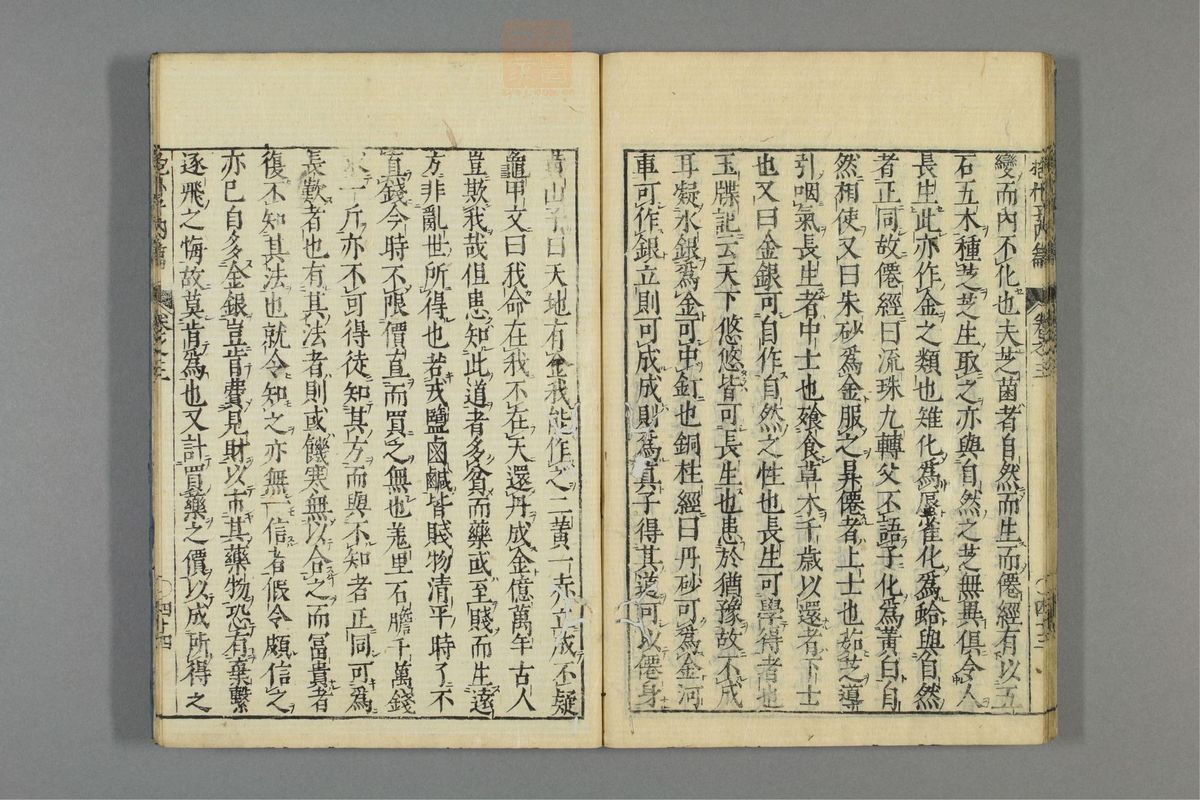 抱朴子内篇 卷之三 〇四十三
變而内不化也夫芝菌者自然而生而僊經有以五
石五木種芝芝生取之亦與自然之芝無異俱令人
長生此亦作金之類也雉化爲蜃雀化爲蛤與自然
者正同故僊經曰流珠九轉父不語子化爲黄白自
然相使又曰朱砂爲金服之昇僊者上士也茹芝導
引咽氣長生者中士也飱食草木千歳以還者下士
也又曰金銀可自作自然之性也長生可學得者也
玉牒記云天下悠悠皆可長生也患於猶豫故不成
耳凝水銀爲金可中釘也銅柱經曰丹砂可爲金河
車可作銀立則可成成則爲真子得其道可以僊身
黄山子曰天地有金我能作之二黄一赤立成不疑
龜甲文曰我命在我不在天還丹成金億萬年古人
豈欺我哉但患知此道者多貧而藥或至賤而生遠
方非亂世所得也若戎鹽鹵鹹皆賤物清平時了不
直錢今時不限價直而買之無也羌里石膽千萬錢
求一斤亦不可得徒知其方而與不知者正同可爲
長歎者也有其法者則或饑寒無以合之而富貴者
復不知其法也就令知之亦無一信者假令頗信之
亦已自多金銀豈肯費見財以市其藥物恐有棄繫
逐飛之悔故莫肯爲也又計買藥之價以成所得之
内篇 卷之三 〇四十四